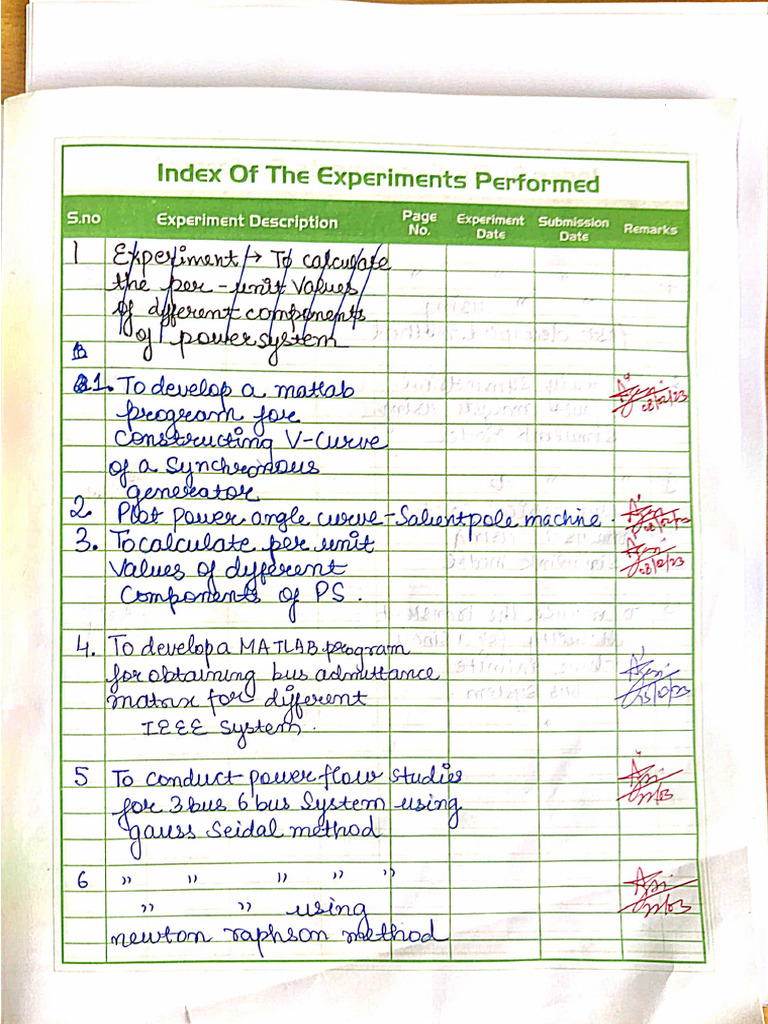 Index Of The Experiments Performed
S.no Experiment Description Page No. Experiment Date Submission Date Remarks
1 Experiment → To calculate
the per-unit values
of different components
of power system
1. To develop a matlab
program for
constructing V-Curve
of a Synchronous
generator
2. Plot power angle curve - Salient pole machine.
3. To calculate per unit
values of different
Components of PS.
4. To develop a MATLAB program
for obtaining bus admittance
matrix for different
IEEE System.
5 To conduct power flow studies
for 3 bus 6 bus System using
gauss Seidal method
6 " " " " "
" " using
newton raphson method